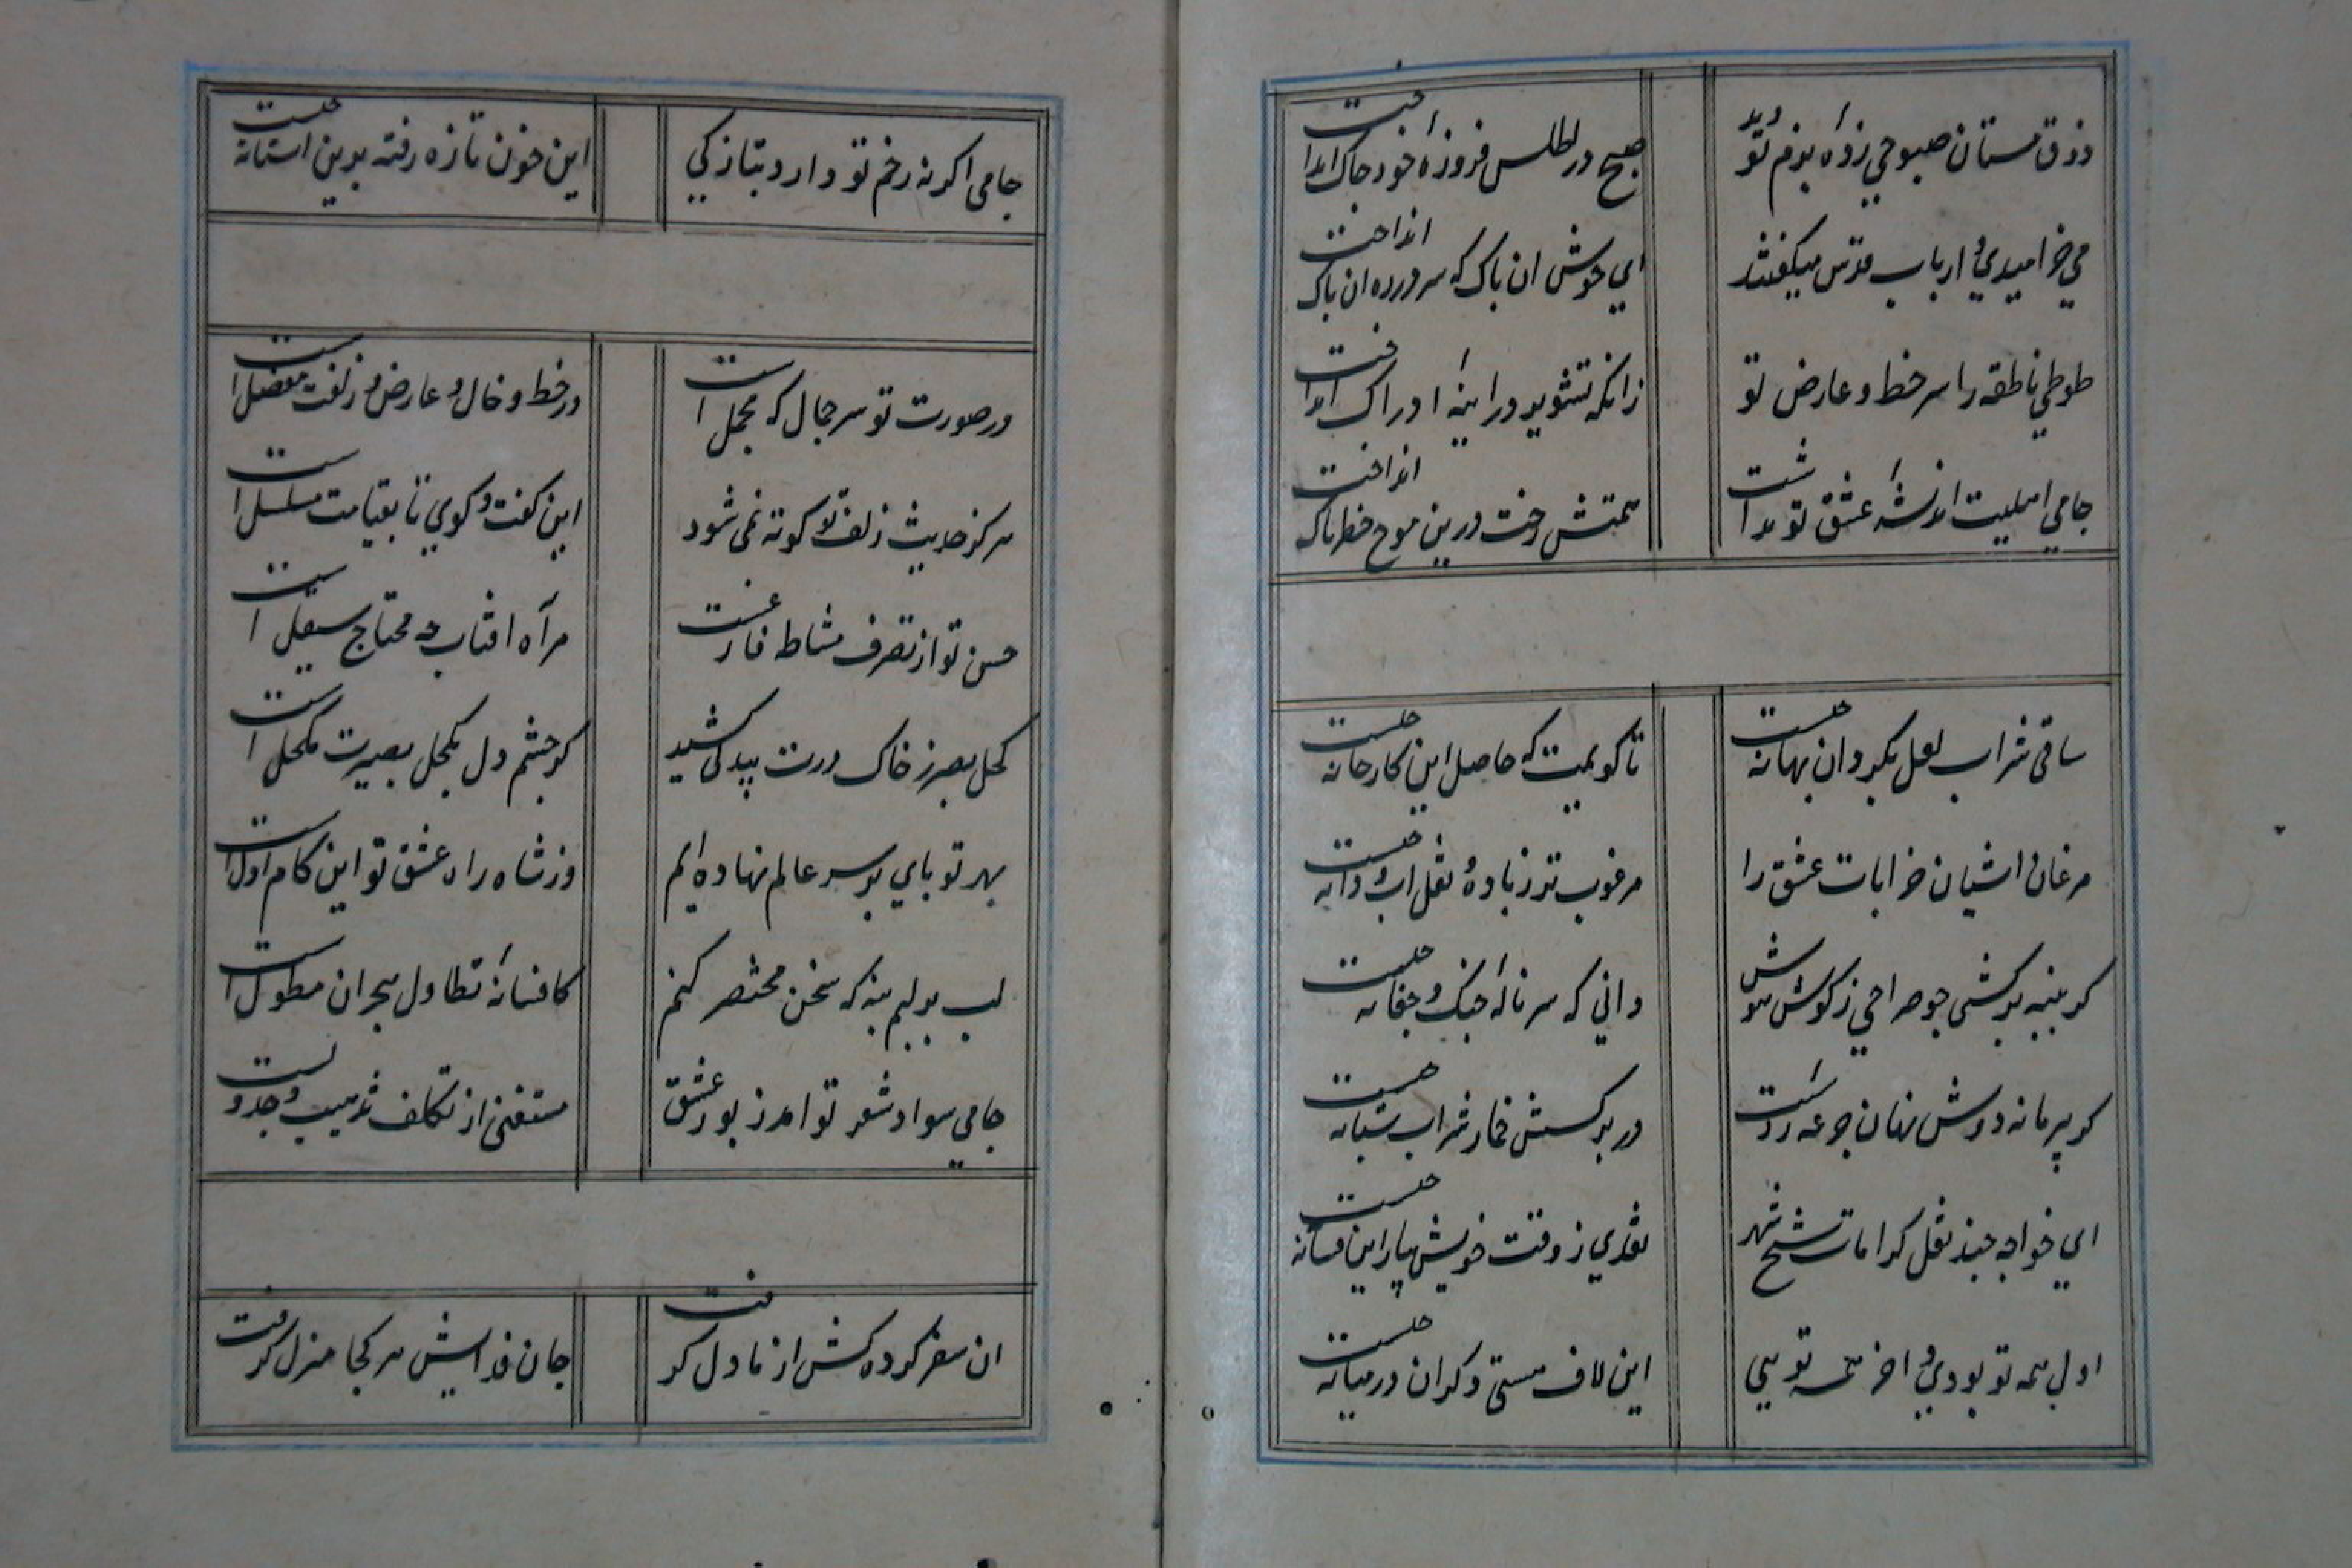 ذوق مستان صبوحی زدهٔ بزم تو دید
صبح در اطلس فروزهٔ خود چاک انداخت
می خرامیدی و ارباب قدس میکفتند
ای خوش ان پاک که سر در ره ان پاک انداخت
طوطی ناطقه را سر خط و عارض تو
زانکه تشویر در اینهٔ ادراک انداخت
جامی اهلیت اندیشهٔ عشق تو نداشت
همتش رخت درین موج خطرناک انداخت
ساقی شراب لعل بکردان بهانه چیست
تا کویمت که حاصل این کارخانه چیست
مرغان اشیان خرابات عشق را
مرغوب تر ز باده و نقل اب و دانه چیست
کر پنبه برکشی چو صراحی ز کوش هوش
دانی که سر نالهٔ چنک و چغانه چیست
کر پیر ما نه دوش نهان جرعه زدست
در نرکسش خمار شراب شبانه چیست
ای خواجه چند نقل کرامات شیخ شهر
نقدی ز وقت خویش بیار این فسانه چیست
اول همه تو بودی و اخر همه تویی
این لاف هستی دکران در میانه چیست
جامی اکر نه زخم تو دارد بتازکی
این خون تازه رفته برین استانه چیست
در صورت تو سر جمال که مجمل است
در خط و خال و عارض و زلفت مفصل است
هرکز حدیث زلف تو کوته نمی شود
این کفت و کوی تا بقیامت مسلسل است
حسن تو از تصرف مشاطه فارغست
مرآه افتاب چه محتاج سیقل است
کحل بصر ز خاک درت بیدلی کشید
کو چشم دل بکحل بصیرت مکحل است
بهر تو پای بر سر عالم نهاده ایم
وز شاه راه عشق تو این کام اول است
لب بر لبم بنه که سخن مختصر کنم
کافسانهٔ تطاول هجران مطول است
جامی سواد شعر تو امد زبور عشق
مستغنی از تکلف تذهیب و جدولست
ان سفر کرده کش از ما دل کرفت
جان فدایش هر کجا منزل کرفت